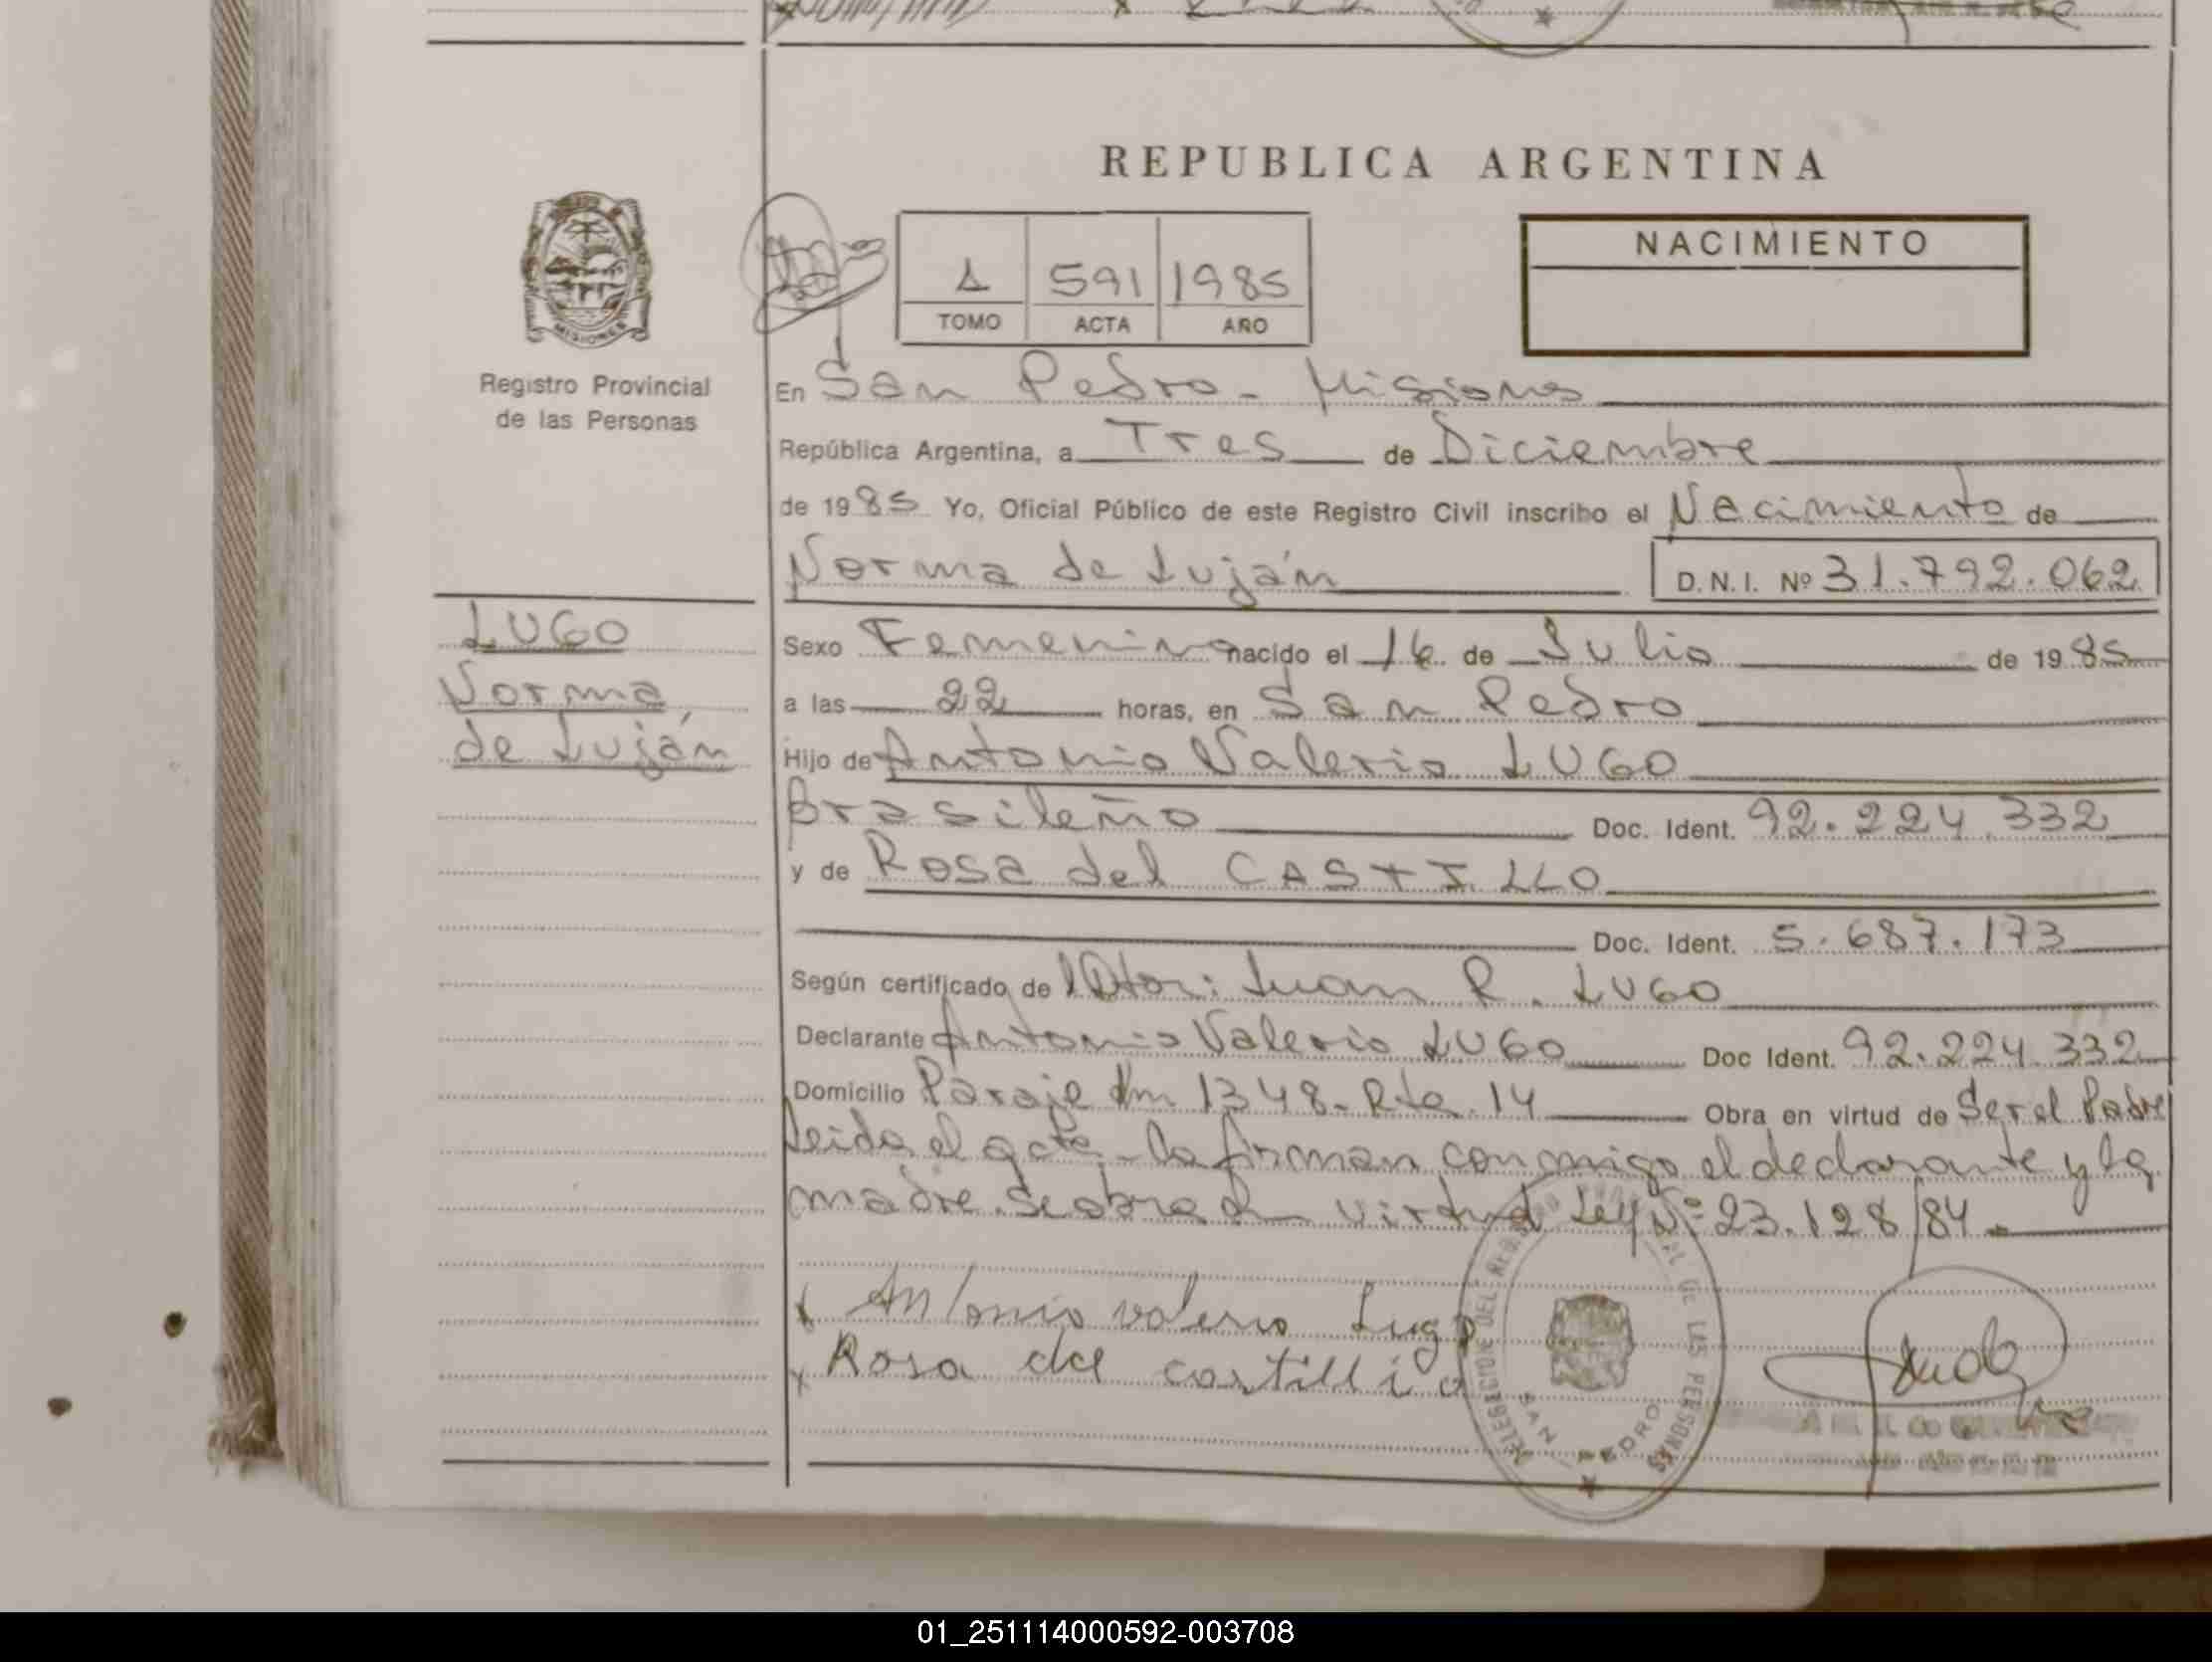 REPUBLICA ARGENTINA
MISIONES
Registro Provincial
de las Personas
1 591 1985
TOMO ACTA AÑO
NACIMIENTO
En San Pedro - Misiones
República Argentina, a Tres de Diciembre
de 1985 Yo, Oficial Público de este Registro Civil inscribo el Nacimiento de
Norma de Luján D.N.I. Nº 31.792.062
LUGO
Norma
de Luján
Sexo Femenino nacido el 16 de Julio de 1985
a las 22 horas, en San Pedro
Hijo de Antonio Valerio LUGO
Brasileño Doc. Ident. 92.224.332
y de Rosa del CASTILLO
Doc. Ident. 5.687.173
Según certificado de Dtor: Juan R. LUGO
Declarante Antonio Valerio LUGO Doc Ident. 92.224.332
Domicilio Paraje Km 1348- Rta. 14 Obra en virtud de Ser el Padre
Leida el acta - la firman conmigo el declarante y la
madre. Se obra en virtud Ley Nº 23.128/84.-
Antonio valerio Lugo
Rosa del castillio
DELEGACION DEL REGISTRO PROVINCIAL DE LAS PERSONAS
SAN PEDRO
01_251114000592-003708